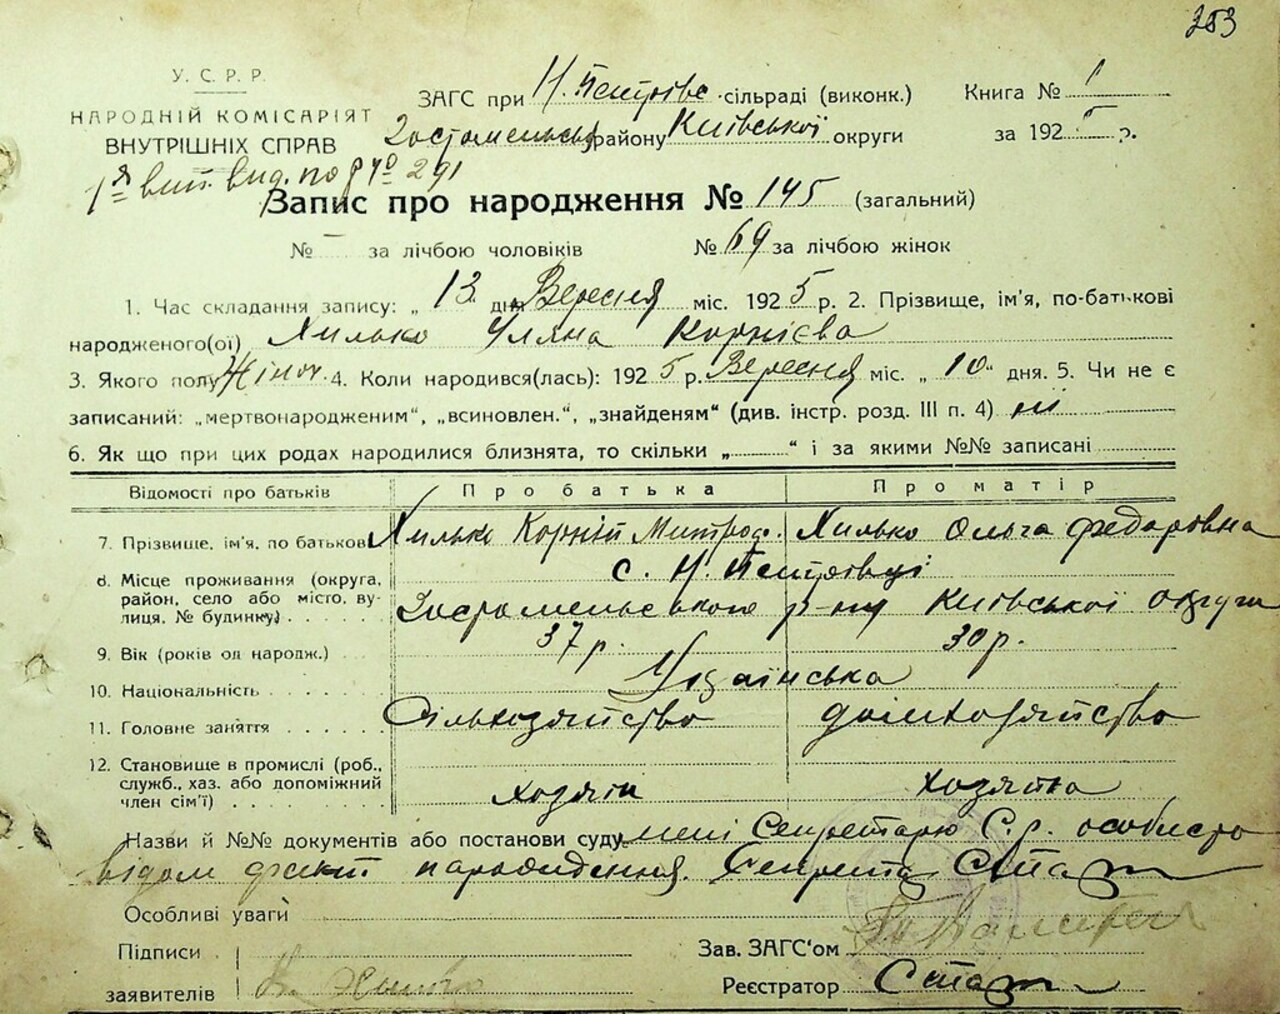 353
У. С. Р. Р.
НАРОДНІЙ КОМІСАРІЯТ
ВНУТРІШНІХ СПРАВ
ЗАГС при Н. Петрівс. сільраді (виконк.) Книга № 1
Гостомельськ району Київської округи за 1925 р.
1я вип. вид. по р 291
Запис про народження № 145 (загальний)
№ – за лічбою чоловіків № 69 за лічбою жінок
1. Час складання запису: „ 13 дня Вересня міс. 1925 р. 2. Прізвище, ім'я, по-батькові
народженого(ої) Хилько Уляна Корнієва
3. Якого полу Жіноч. 4. Коли народився(лась): 1925 р. Вересня міс. „ 10 “ дня. 5. Чи не є
записаний: „мертвонародженим“, „всиновлен.“, „знайденям“ (див. інстр. розд. III п. 4) ні
6. Як що при цих родах народилися близнята, то скільки „ “ і за якими №№ записані
Відомості про батьків Про батька Про матір
7. Прізвище, ім'я, по батькові Хилько Корній Митроф. Хилько Ольга Федоровна
8. Місце проживання (округа, с. Н. Петрівці
район, село або місто, ву- Гостомельського р-ну Київської округи
лиця, № будинку)
9. Вік (років од народж.) 37 р. 30 р.
10. Національність Українська
11. Головне заняття Сільхозяйство домхозяйство
12. Становище в промислі (роб.,
служб., хаз. або допоміжний хозяїн хозяйка
член сім'ї)
Назви й №№ документів або постанови суду мені Секретарю С.р. особисто
відом факт народидення. Секрета
Особливі уваги
Підписи Зав. ЗАГС'ом
заявителів Хилько Реєстратор